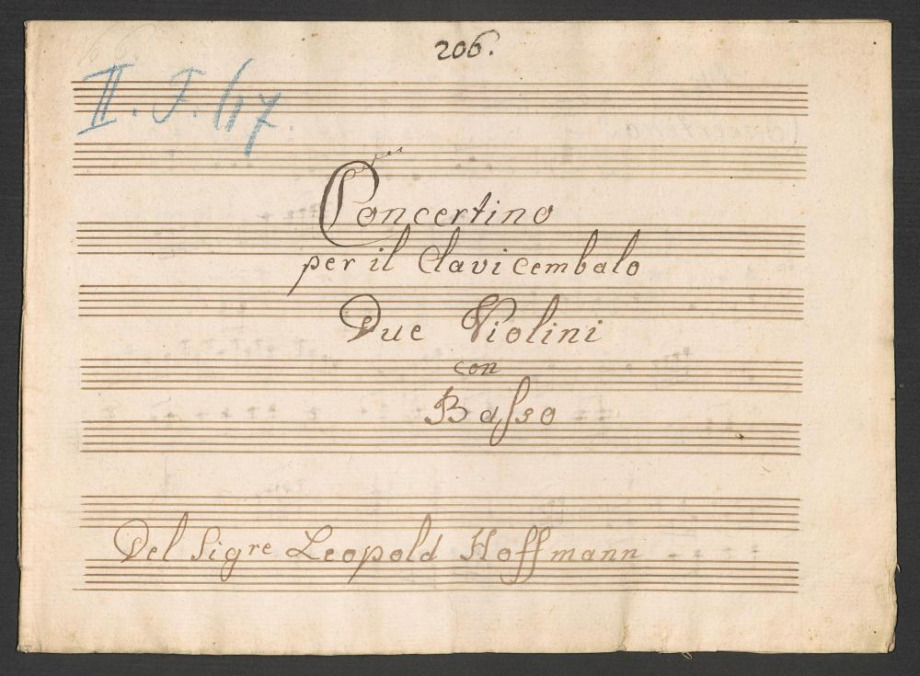 206.
II. F. 47
Concertino
per il Clavicembalo
Due Violini
con
Basso
Del Sigre Leopold Hoffmann